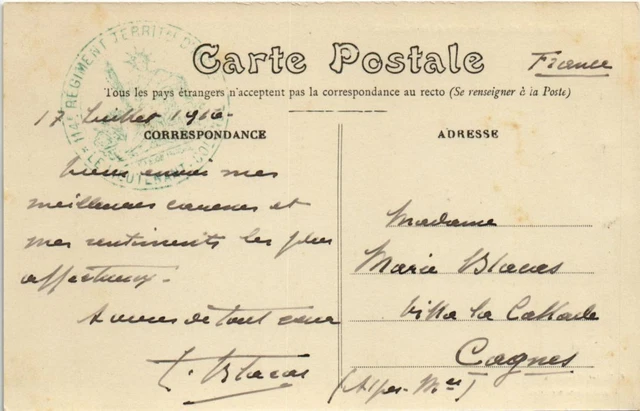 114e RÉGIMENT TERRITORIAL
LE LIEUTENANT-COLONEL
Carte Postale
France
Tous les pays étrangers n'acceptent pas la correspondance au recto (Se renseigner à la Poste)
17 Juillet 1916
CORRESPONDANCE
ADRESSE
mes
meilleures caresses et
mes sentiments les plus
affectueux.
A vous de tout cœur
Blacas
Madame
Marie Blacas
Villa la
Cagnes
(Alpes-Mmes)